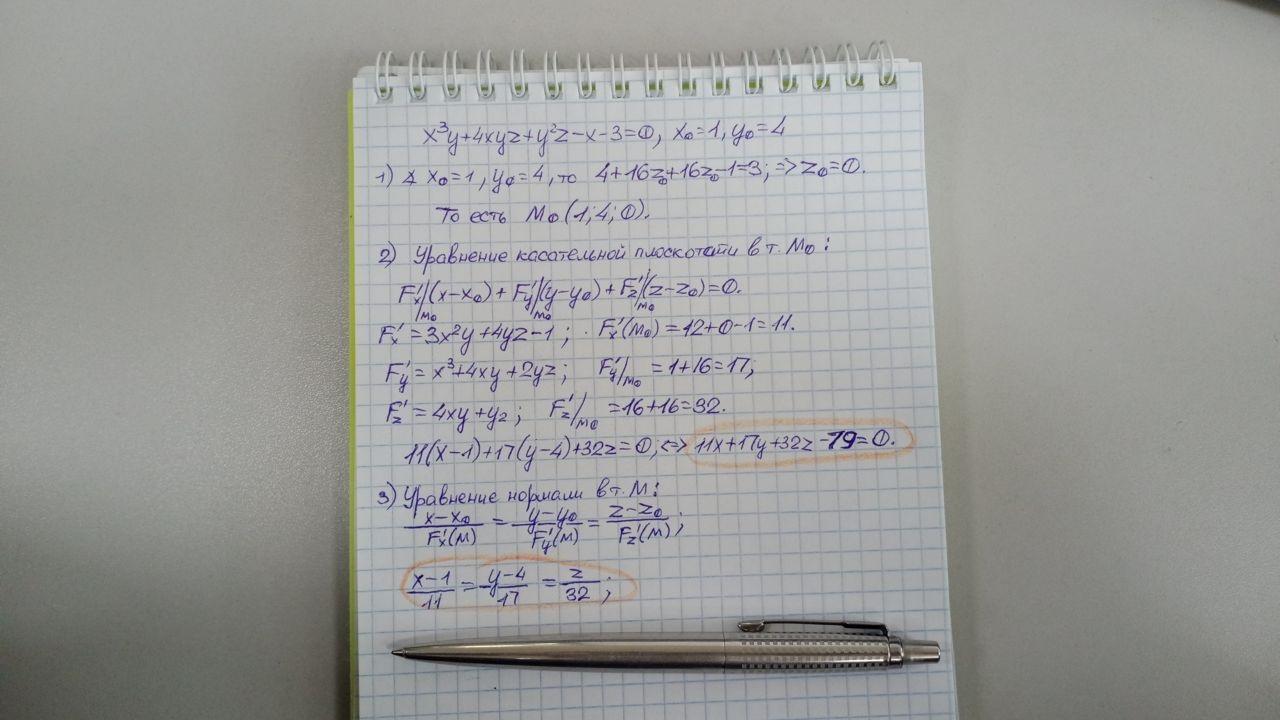 x³y+4xyz+y²z-x-3=0, x₀=1, y₀=4
1) ∡ x₀=1, y₀=4, то 4+16z₀+16z₀-1=3; => z₀=0.
То есть M₀(1; 4; 0).
2) Уравнение касательной плоскотати в т. M₀:
F'x|M₀(x-x₀)+F'y|M₀(y-y₀)+F'z|M₀(z-z₀)=0.
F'x=3x²y+4yz-1; F'x(M₀)=12+0-1=11.
F'y=x³+4xy+2yz; F'y|M₀=1+16=17;
F'z=4xy+y²; F'z|M₀=16+16=32.
11(x-1)+17(y-4)+32z=0, <=> 11x+17y+32z-79=0.
3) Уравнение нормали в т. M:
(x-x₀)/F'x(M) = (y-y₀)/F'y(M) = (z-z₀)/F'z(M);
(x-1)/11 = (y-4)/17 = z/32;